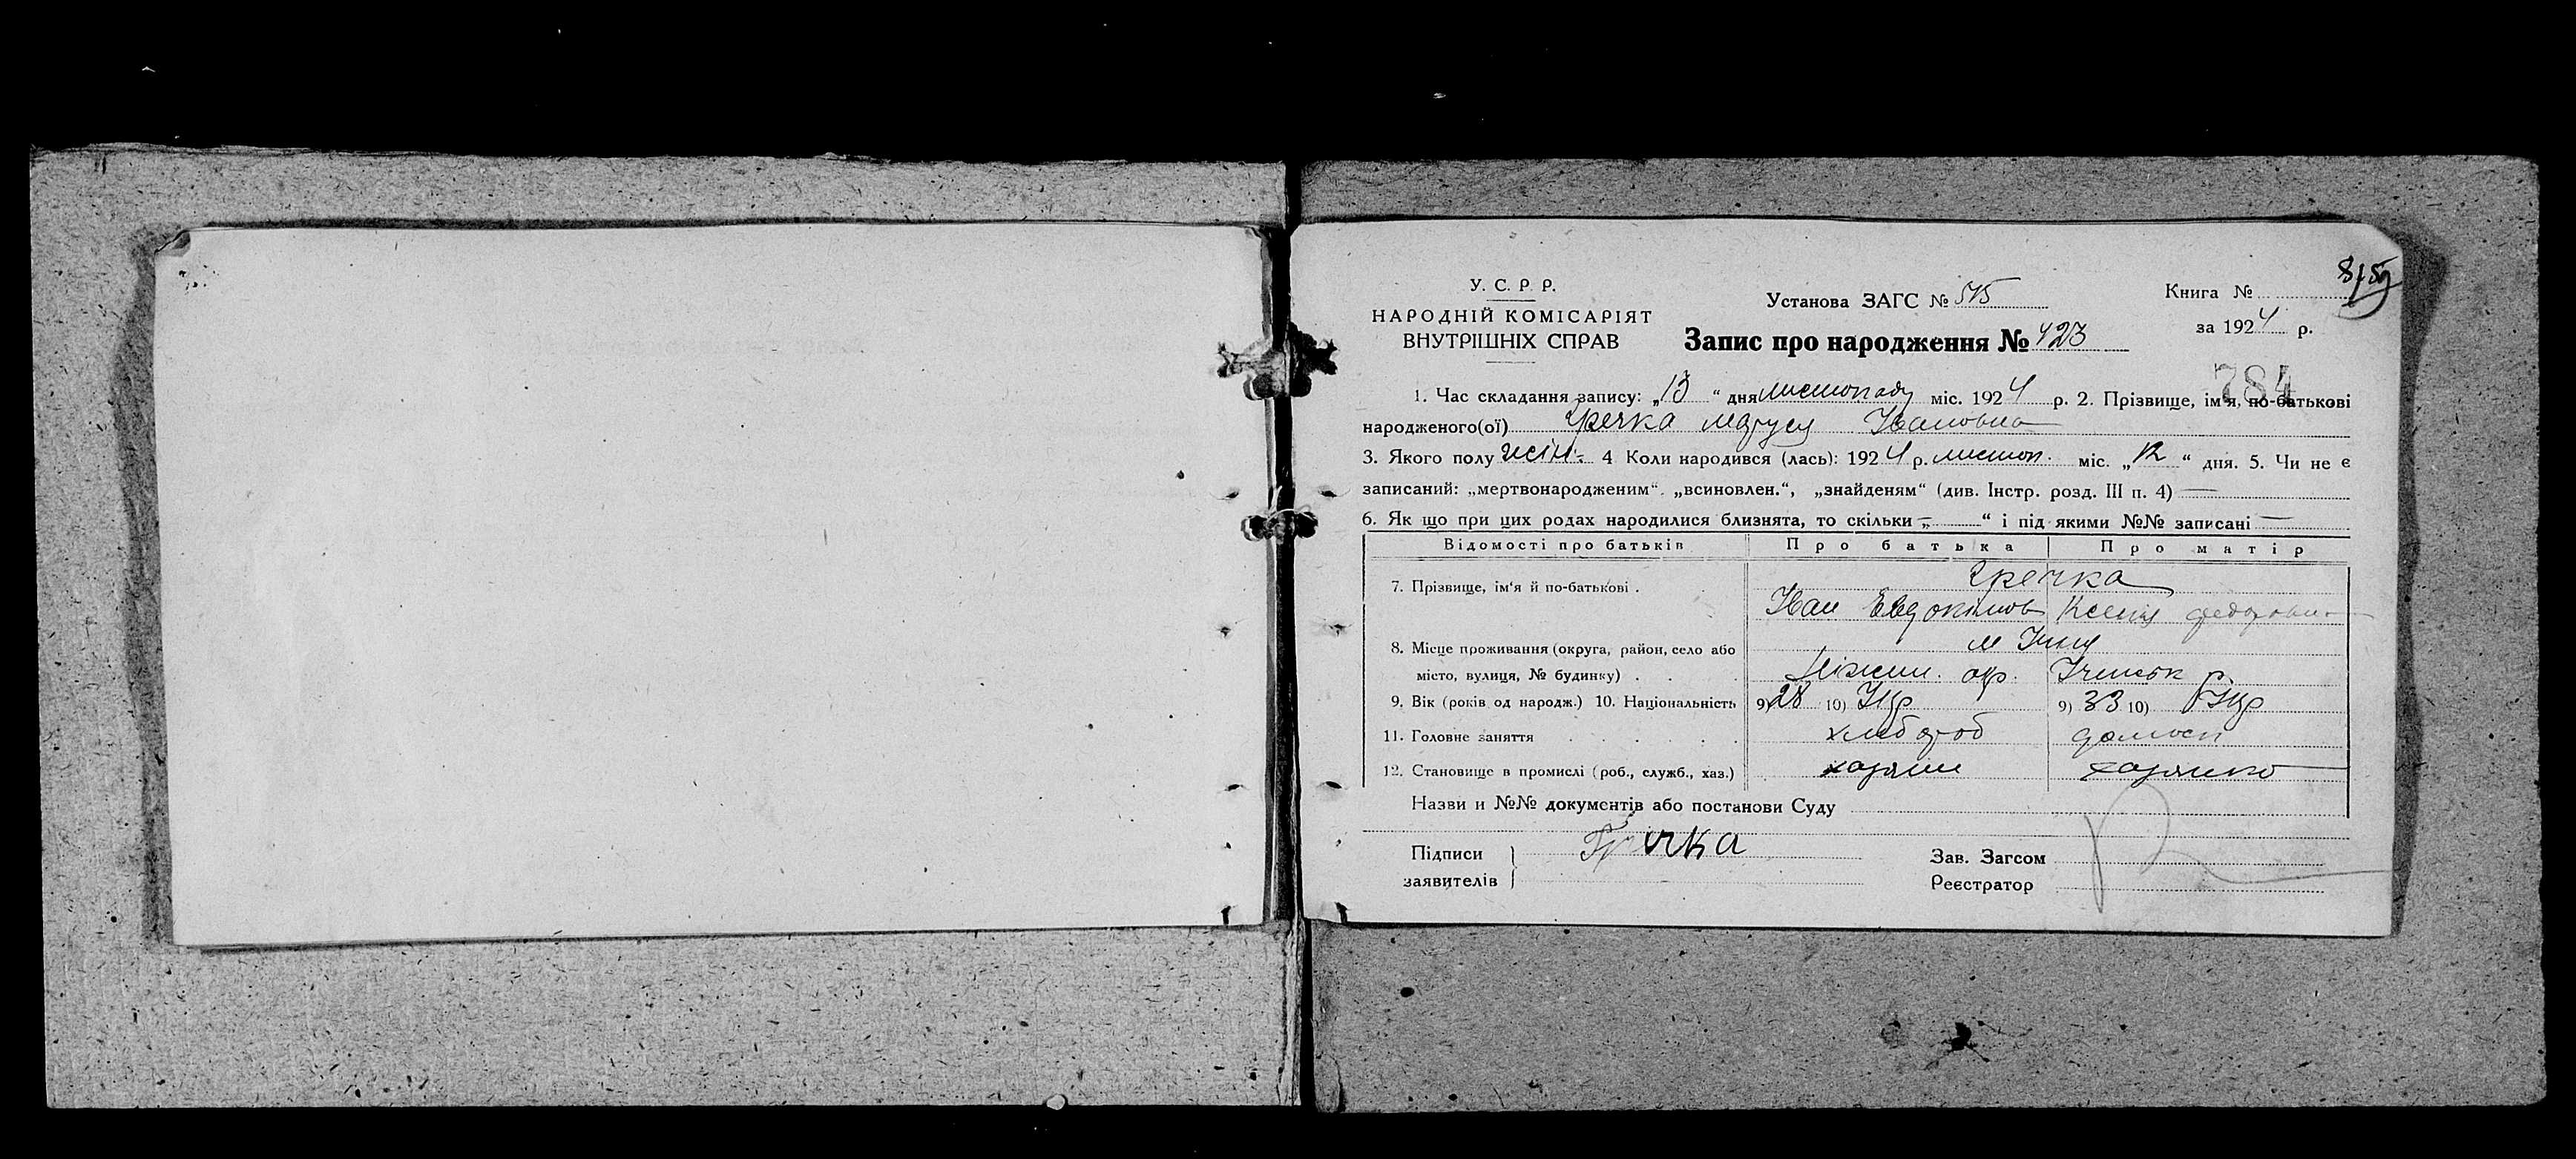 У. С. Р. Р.
НАРОДНІЙ КОМІСАРІЯТ
ВНУТРІШНІХ СПРАВ
Установа ЗАГС № 515
Книга №
за 1924 р.
Запис про народження № 423
784
1. Час складання запису: „13“ дня листопаду міс. 1924 р. 2. Прізвище, ім'я, по-батькові
народженого(ої) Гречка Маруся Ивановна
3. Якого полу жін. 4 Коли народився (лась): 1924 р. листоп. міс. „12“ дня. 5. Чи не є
записаний: „мертвонародженим“, „всиновлен.“, „знайденям“ (див. Інстр. розд. III п. 4) —
6. Як що при цих родах народилися близнята, то скільки „—“ і під якими №№ записані —
Відомості про батьків Про батька Про матір
7. Прізвище, ім'я й по-батькові . Гречка
Иван Евдокимов Ксения Федоровна
8. Місце проживання (округа, район, село або м Ичня
місто, вулиця, № будинку) . . . Ніжин. окр. Ічнянськ р.
9. Вік (років од народж.) 10. Національність 9) 28 10) Укр 9) 33 10) Укр
11. Головне заняття . . . . . . хлібороб домогосп
12. Становище в промислі (роб., служб., хаз.) хозяин хозяйка
Назви и №№ документів або постанови Суду
Підписи Гречка
заявителів
Зав. Загсом
Реєстратор